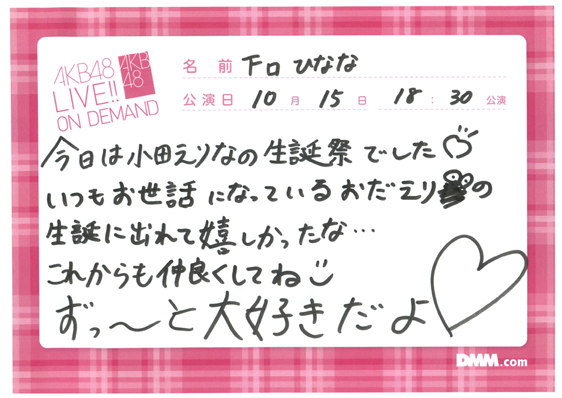 AKB48
LIVE!!
ON DEMAND
AKB
48
名前 下口ひなな
公演日 10月15日 18:30公演
今日は小田えりなの生誕祭でした
いつもお世話になっているおだえりの
生誕に出れて嬉しかったな…
これからも仲良くしてね
ずっ〜と大好きだよ
DMM.com